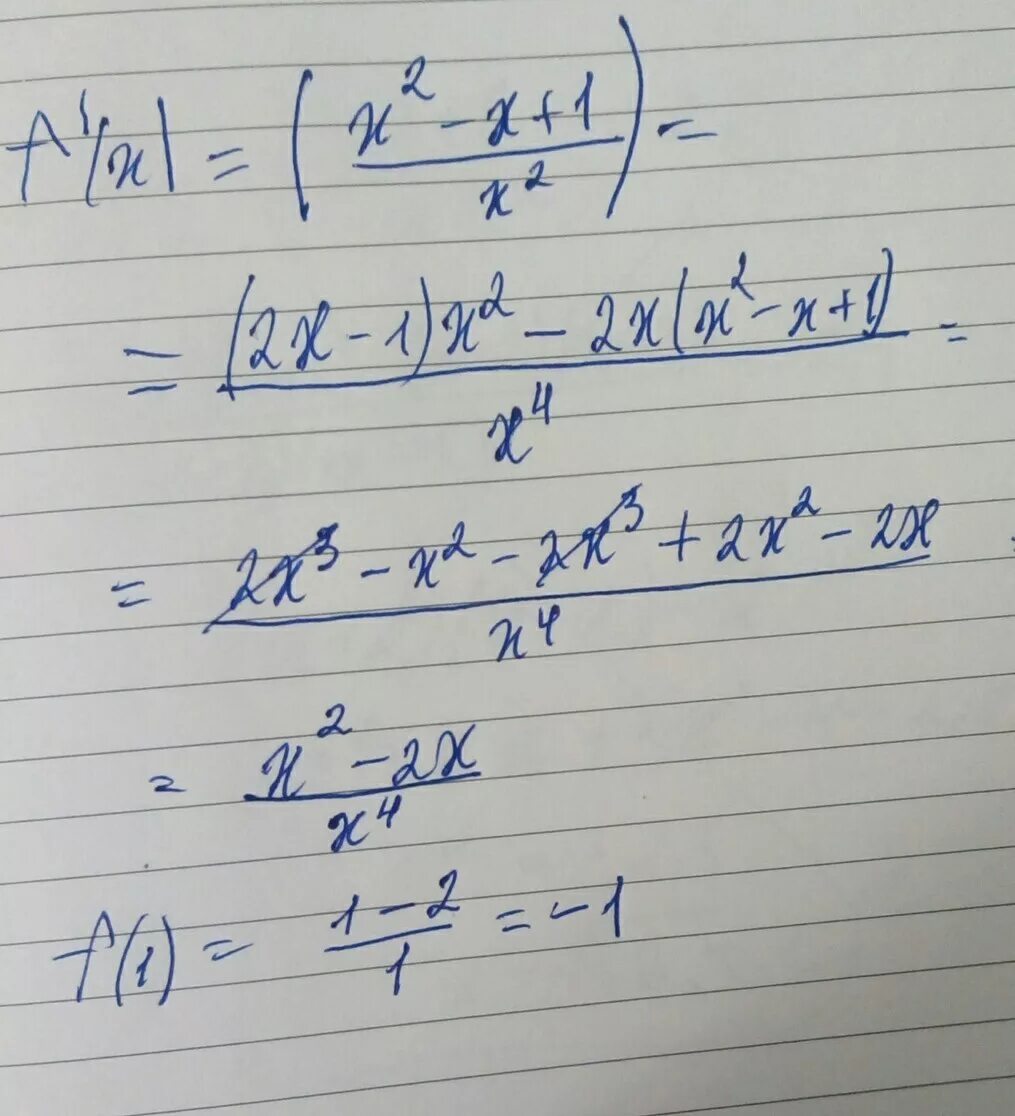 f'(x) = ( (x² - x + 1) / x² ) =
= ((2x - 1)x² - 2x(x² - x + 1)) / x⁴ =
= (2x³ - x² - 2x³ + 2x² - 2x) / x⁴
= (x² - 2x) / x⁴
f(1) = (1 - 2) / 1 = -1